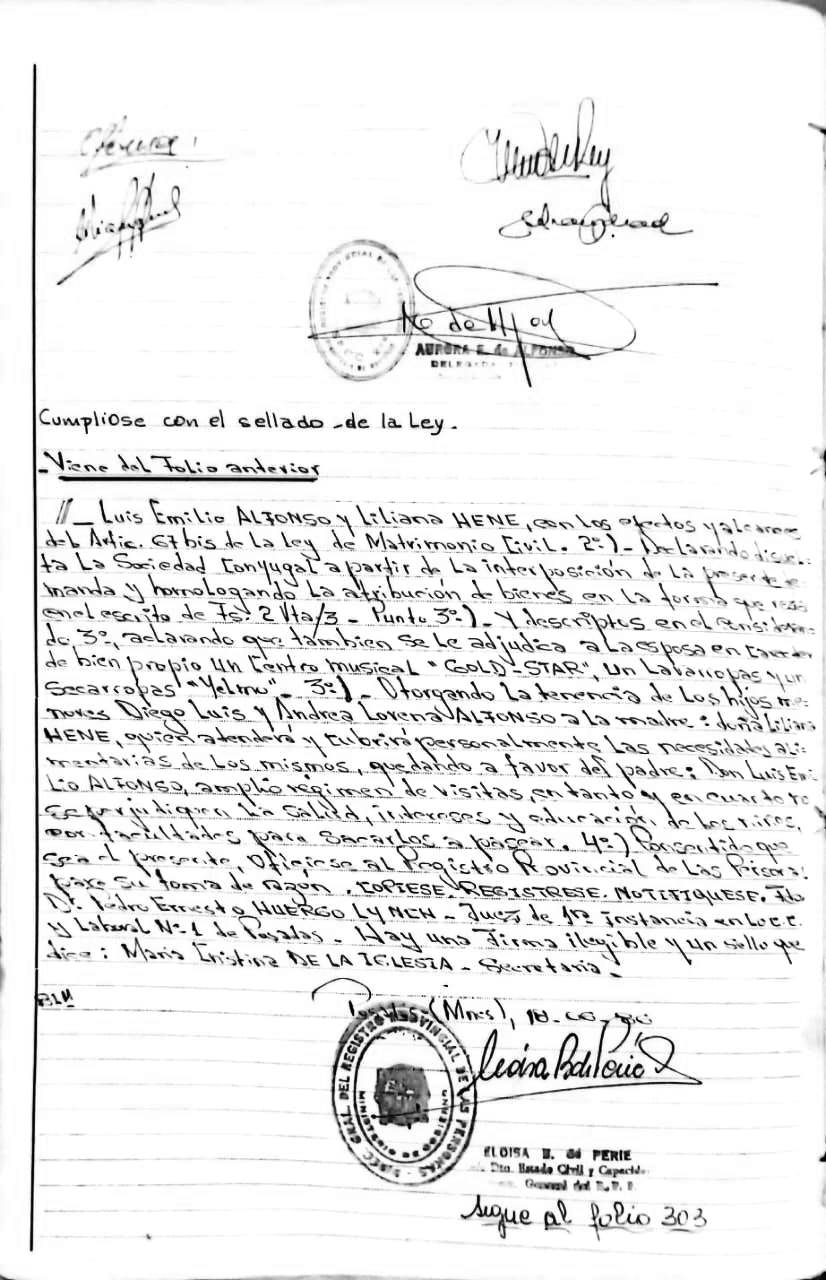 No de H y od
AURORA E. de ALFONSO
DELEGADA
Cumpliose con el sellado de la Ley.
- Viene del Folio anterior
//_ Luis Emilio ALFONSO y Liliana HENE, con los efectos y alcances
del Artic. 67 bis de la Ley de Matrimonio Civil. 2º)- Declarando disuel-
ta La Sociedad Conyugal a partir de La interposición de La presente de-
manda y homologando La atribución de bienes en La forma que
en el escrito de Fs. 2 Vta/3 - Punto 3º)- y descriptos en el Consideran-
do 3º, aclarando que tambien se Le adjudica a La esposa en
de bien propio un Centro musical "GOLD-STAR", un Lavarropas y un
Secarropas "Yelmo"- 3º)- Otorgando La tenencia de Los hijos me-
nores Diego Luis y Andrea Lorena ALFONSO a la madre: doña Liliana
HENE, quien atenderá y cubrirá personalmente Las necesidades ali-
mentarias de Los mismos, quedando a favor del padre: Don Luis Emi-
Lio ALFONSO, amplio régimen de visitas, en tanto y en cuanto no
se perjudiquen La salud, intereses y educación de Los niños,
con facultades para Sacarlos a pasear. 4º) Consentido que
sea el presente, Ofíciese al Registro Provincial de Las Personas
para su toma de razon. COPIESE. REGISTRESE. NOTIFIQUESE. Fdo
Dr. Pedro Ernesto HUERGO LYNCH - Juez de 1ra Instancia en Lo C.C.
y Laboral Nº 1 de Posadas - Hay una Firma ilegible y un sello que
dice: Maria Cristina DE LA IGLESIA - Secretaria -
BLM
Posadas (Mnes),
DIREC. GRAL. DEL REGISTRO PROVINCIAL DE LAS PERSONAS
MINISTERIO DE GOBIERNO
ELOISA B. de PERIE
Dto. Estado Civil y Capacidad
General del R. P. P.
Sigue al folio 303